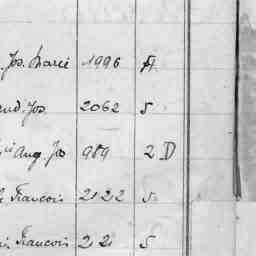 Jos. Marie 1996 A
Jos. 2062 5
Aug. Jos 989 2 D
Francois 2122 5
Francois 22 5